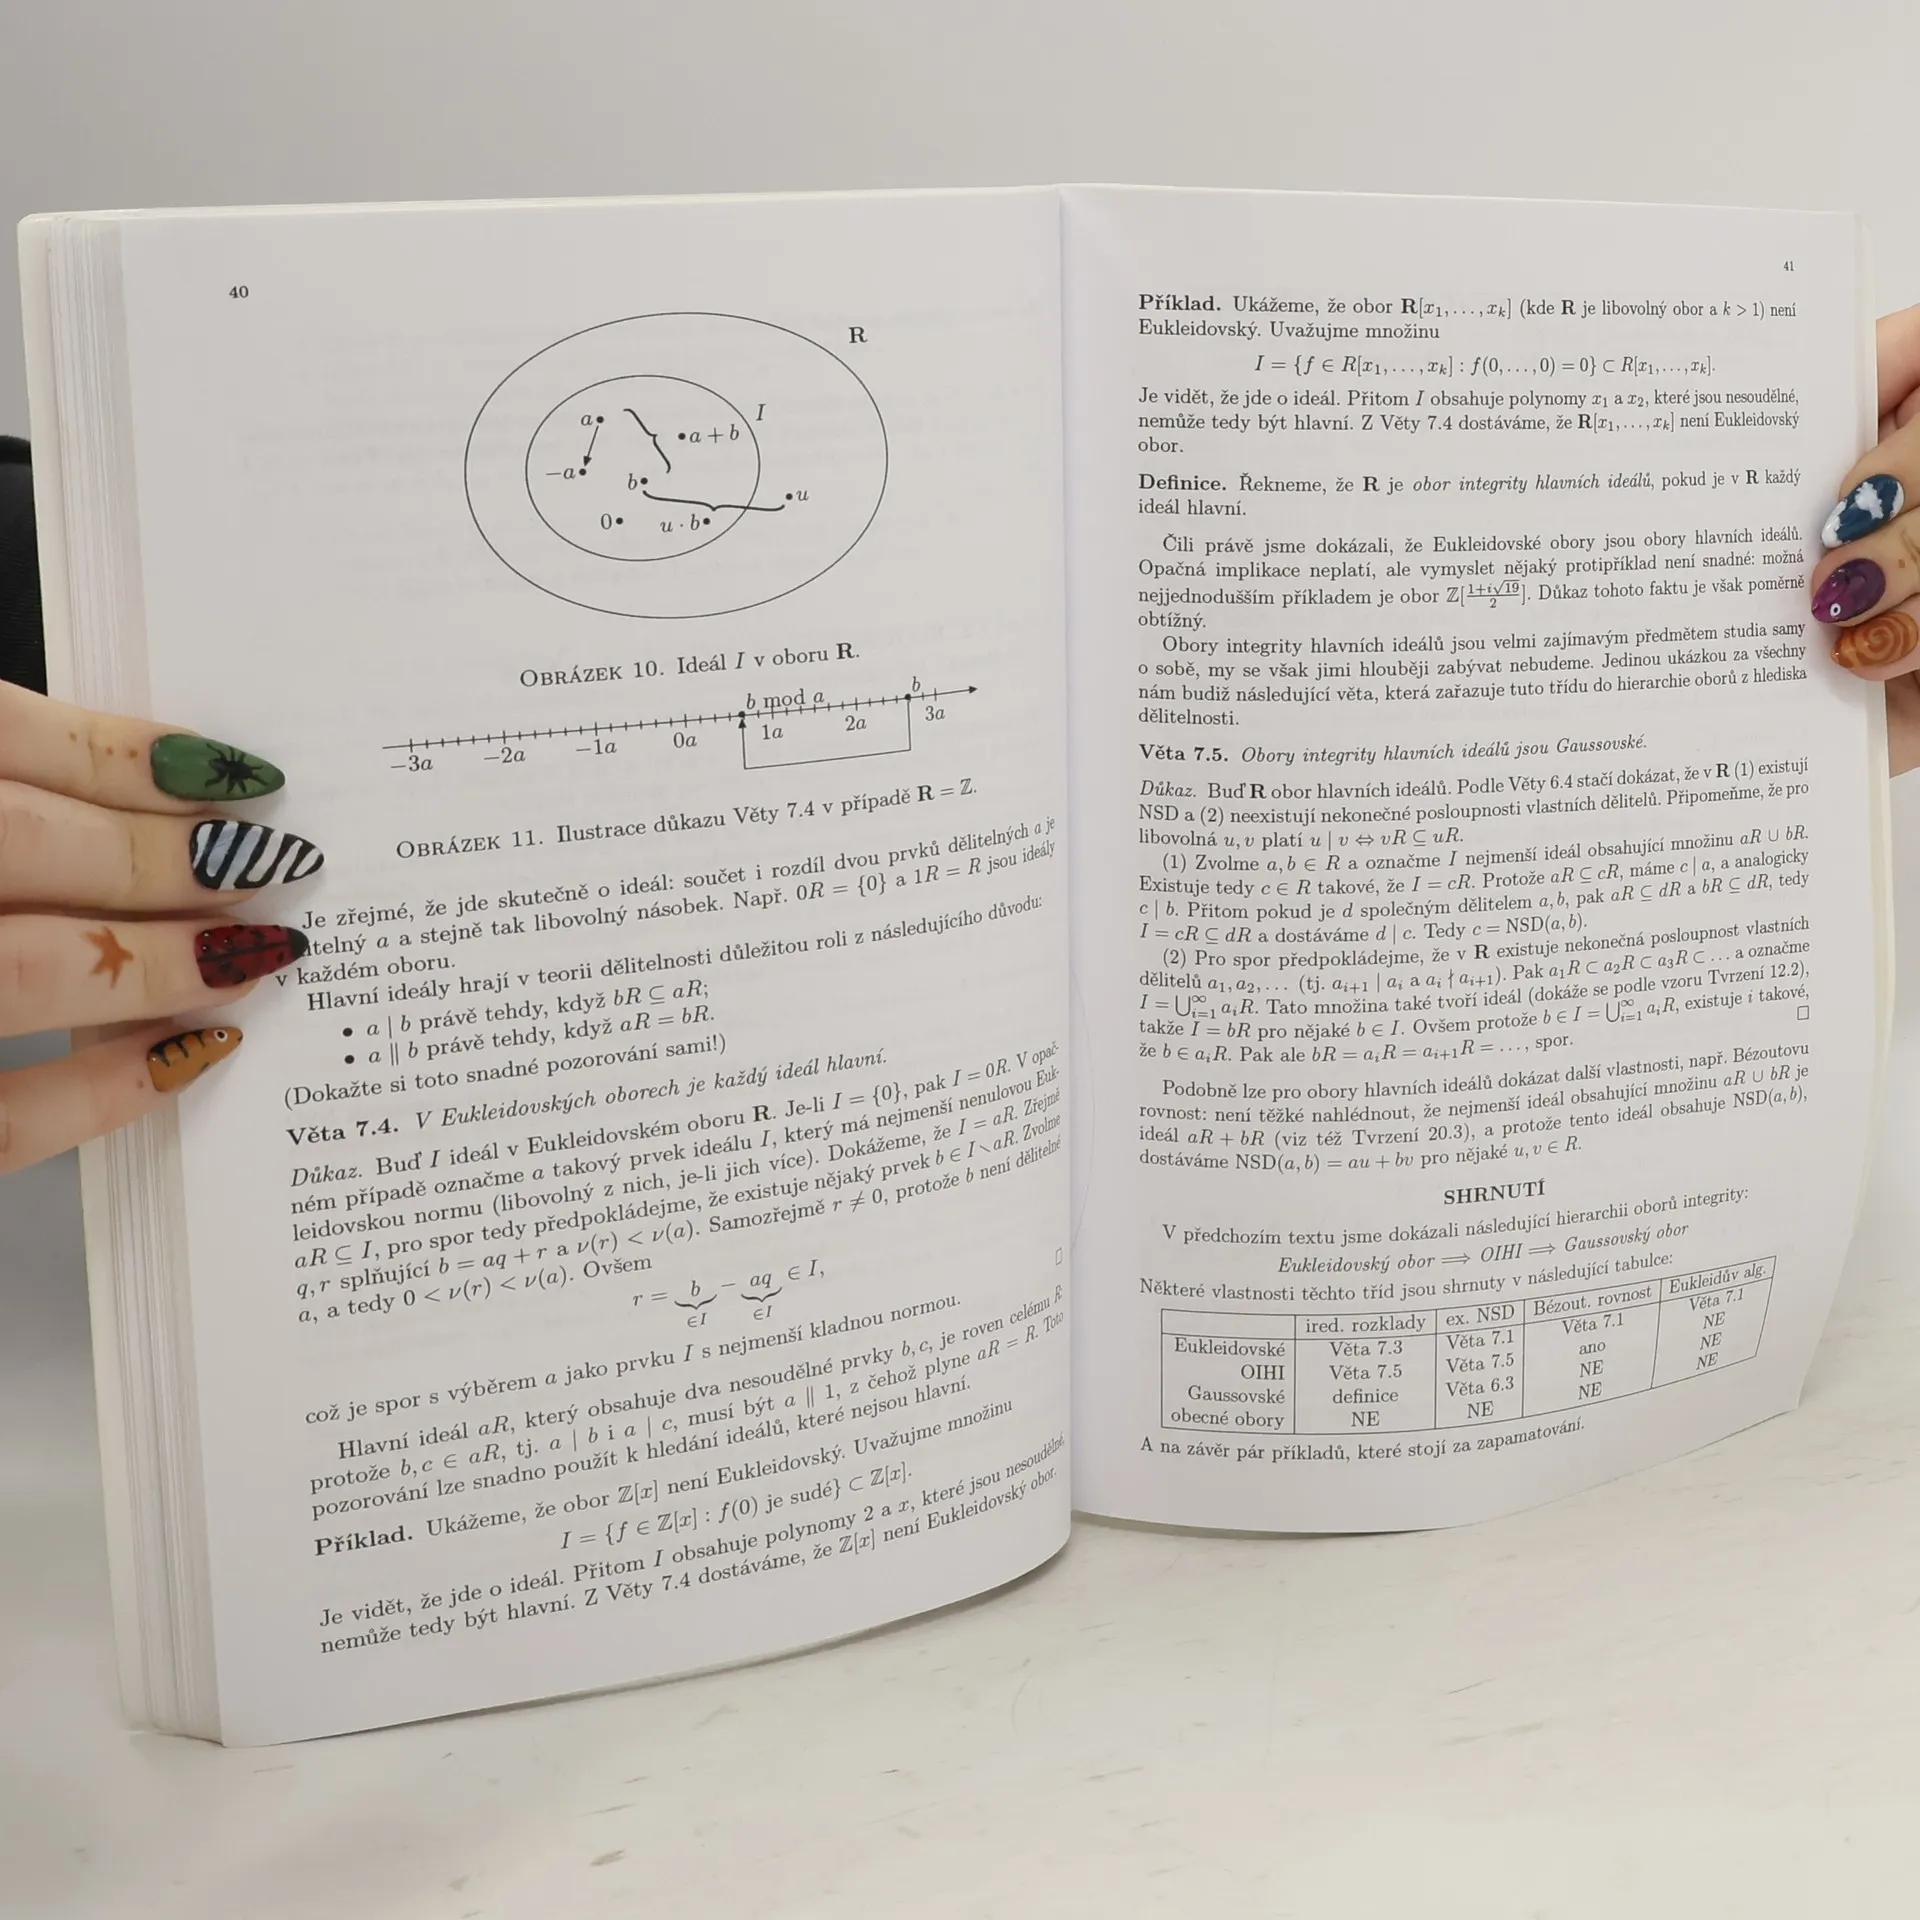 40
R
I
a
a + b
−a
b
u
0
u · b
OBRÁZEK 10. Ideál I v oboru R.
b mod a
b
−3a −2a −1a 0a 1a 2a 3a
OBRÁZEK 11. Ilustrace důkazu Věty 7.4 v případě R = ℤ.
Je zřejmé, že jde skutečně o ideál: součet i rozdíl dvou prvků dělitelných a je
a a stejně tak libovolný násobek. Např. 0R = {0} a 1R = R jsou ideály
v každém oboru.
Hlavní ideály hrají v teorii dělitelnosti důležitou roli z následujícího důvodu:
• a | b právě tehdy, když bR ⊆ aR;
• a ∥ b právě tehdy, když aR = bR.
(Dokažte si toto snadné pozorování sami!)
Věta 7.4. V Eukleidovských oborech je každý ideál hlavní.
Důkaz. Buď I ideál v Eukleidovském oboru R. Je-li I = {0}, pak I = 0R. V opač-
ném případě označme a takový prvek ideálu I, který má nejmenší nenulovou Euk-
leidovskou normu (libovolný z nich, je-li jich více). Dokážeme, že I = aR. Zřejmě
aR ⊆ I, pro spor tedy předpokládejme, že existuje nějaký prvek b ∈ I∖aR. Zvolme
q, r splňující b = aq + r a ν(r) < ν(a). Samozřejmě r ≠ 0, protože b není dělitelné
a, a tedy 0 < ν(r) < ν(a). Ovšem
r = b − aq ∈ I,
∈I ∈I
což je spor s výběrem a jako prvku I s nejmenší kladnou normou. □
Hlavní ideál aR, který obsahuje dva nesoudělné prvky b, c, je roven celému R:
protože b, c ∈ aR, tj. a | b i a | c, musí být a ∥ 1, z čehož plyne aR = R. Toto
pozorování lze snadno použít k hledání ideálů, které nejsou hlavní.
Příklad. Ukážeme, že obor ℤ[x] není Eukleidovský. Uvažujme množinu
I = {f ∈ ℤ[x] : f(0) je sudé} ⊂ ℤ[x].
Je vidět, že jde o ideál. Přitom I obsahuje polynomy 2 a x, které jsou nesoudělné,
nemůže tedy být hlavní. Z Věty 7.4 dostáváme, že ℤ[x] není Eukleidovský obor.
41
Příklad. Ukážeme, že obor R[x₁, . . . , xₖ] (kde R je libovolný obor a k > 1) není
Eukleidovský. Uvažujme množinu
I = {f ∈ R[x₁, . . . , xₖ] : f(0, . . . , 0) = 0} ⊂ R[x₁, . . . , xₖ].
Je vidět, že jde o ideál. Přitom I obsahuje polynomy x₁ a x₂, které jsou nesoudělné,
nemůže tedy být hlavní. Z Věty 7.4 dostáváme, že R[x₁, . . . , xₖ] není Eukleidovský
obor.
Definice. Řekneme, že R je obor integrity hlavních ideálů, pokud je v R každý
ideál hlavní.
Čili právě jsme dokázali, že Eukleidovské obory jsou obory hlavních ideálů.
Opačná implikace neplatí, ale vymyslet nějaký protipříklad není snadné: možná
nejjednodušším příkladem je obor ℤ[(1+i√19)/2]. Důkaz tohoto faktu je však poměrně
obtížný.
Obory integrity hlavních ideálů jsou velmi zajímavým předmětem studia samy
o sobě, my se však jimi hlouběji zabývat nebudeme. Jedinou ukázkou za všechny
nám budiž následující věta, která zařazuje tuto třídu do hierarchie oborů z hlediska
dělitelnosti.
Věta 7.5. Obory integrity hlavních ideálů jsou Gaussovské.
Důkaz. Buď R obor hlavních ideálů. Podle Věty 6.4 stačí dokázat, že v R (1) existují
NSD a (2) neexistují nekonečné posloupnosti vlastních dělitelů. Připomeňme, že pro
libovolná u, v platí u | v ⇔ vR ⊆ uR.
(1) Zvolme a, b ∈ R a označme I nejmenší ideál obsahující množinu aR ∪ bR.
Existuje tedy c ∈ R takové, že I = cR. Protože aR ⊆ cR, máme c | a, a analogicky
c | b. Přitom pokud je d společným dělitelem a, b, pak aR ⊆ dR a bR ⊆ dR, tedy
I = cR ⊆ dR a dostáváme d | c. Tedy c = NSD(a, b).
(2) Pro spor předpokládejme, že v R existuje nekonečná posloupnost vlastních
dělitelů a₁, a₂, . . . (tj. aᵢ₊₁ | aᵢ a aᵢ ∤ aᵢ₊₁). Pak a₁R ⊂ a₂R ⊂ a₃R ⊂ . . . a označme
I = ⋃ᵢ₌₁^∞ aᵢR. Tato množina také tvoří ideál (dokáže se podle vzoru Tvrzení 12.2),
takže I = bR pro nějaké b ∈ I. Ovšem protože b ∈ I = ⋃ᵢ₌₁^∞ aᵢR, existuje i takové,
že b ∈ aᵢR. Pak ale bR = aᵢR = aᵢ₊₁R = . . . , spor. □
Podobně lze pro obory hlavních ideálů dokázat další vlastnosti, např. Bézoutovu
rovnost: není těžké nahlédnout, že nejmenší ideál obsahující množinu aR ∪ bR je
ideál aR + bR (viz též Tvrzení 20.3), a protože tento ideál obsahuje NSD(a, b),
dostáváme NSD(a, b) = au + bv pro nějaké u, v ∈ R.
SHRNUTÍ
V předchozím textu jsme dokázali následující hierarchii oborů integrity:
Eukleidovský obor ⟹ OIHI ⟹ Gaussovský obor
Některé vlastnosti těchto tříd jsou shrnuty v následující tabulce:
ired. rozklady ex. NSD Bézout. rovnost Eukleidův alg.
Eukleidovské Věta 7.3 Věta 7.1 Věta 7.1 Věta 7.1
OIHI Věta 7.5 Věta 7.5 ano NE
Gaussovské definice Věta 6.3 NE NE
obecné obory NE NE NE NE
A na závěr pár příkladů, které stojí za zapamatování.